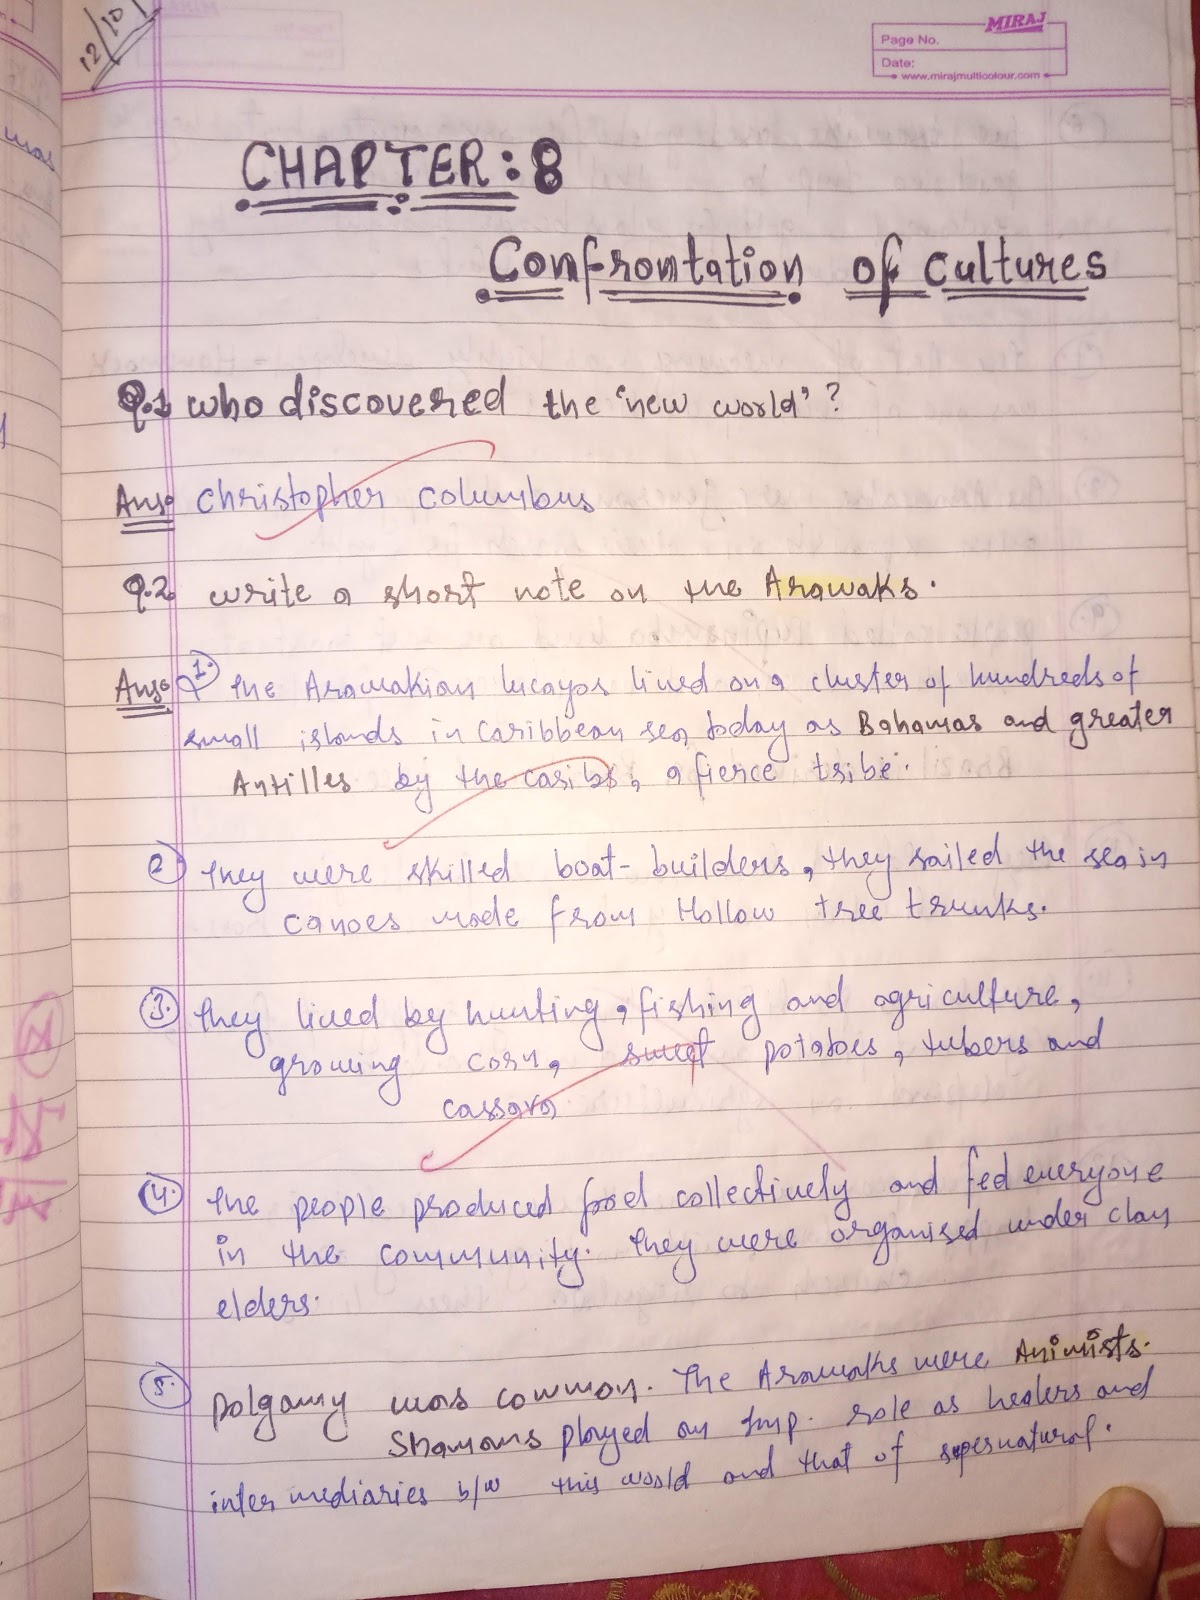 12/10
MIRAJ
Page No.
Date:
www.mirajmulticolour.com
was
CHAPTER: 8
Confrontation of Cultures
Q.1 who discovered the 'new world'?
Ans: Christopher Columbus
Q.2 write a short note on the Arawaks.
Ans: 1. The Arawakian lucayos lived on a cluster of hundreds of
small islands in Caribbean sea, today as Bahamas and greater
Antilles by the caribs, a fierce tribe.
2. They were skilled boat-builders, they sailed the sea in
canoes made from Hollow tree trunks.
3. They lived by hunting, fishing and agriculture,
growing corn, sweet potatoes, tubers and
cassava
4. The people produced food collectively and fed everyone
in the community. They were organised under clan
elders.
5. Polgamy was common. The Arawaks were Animists.
Shamans played an Imp. role as healers and
inter mediaries b/w this world and that of supernatural.